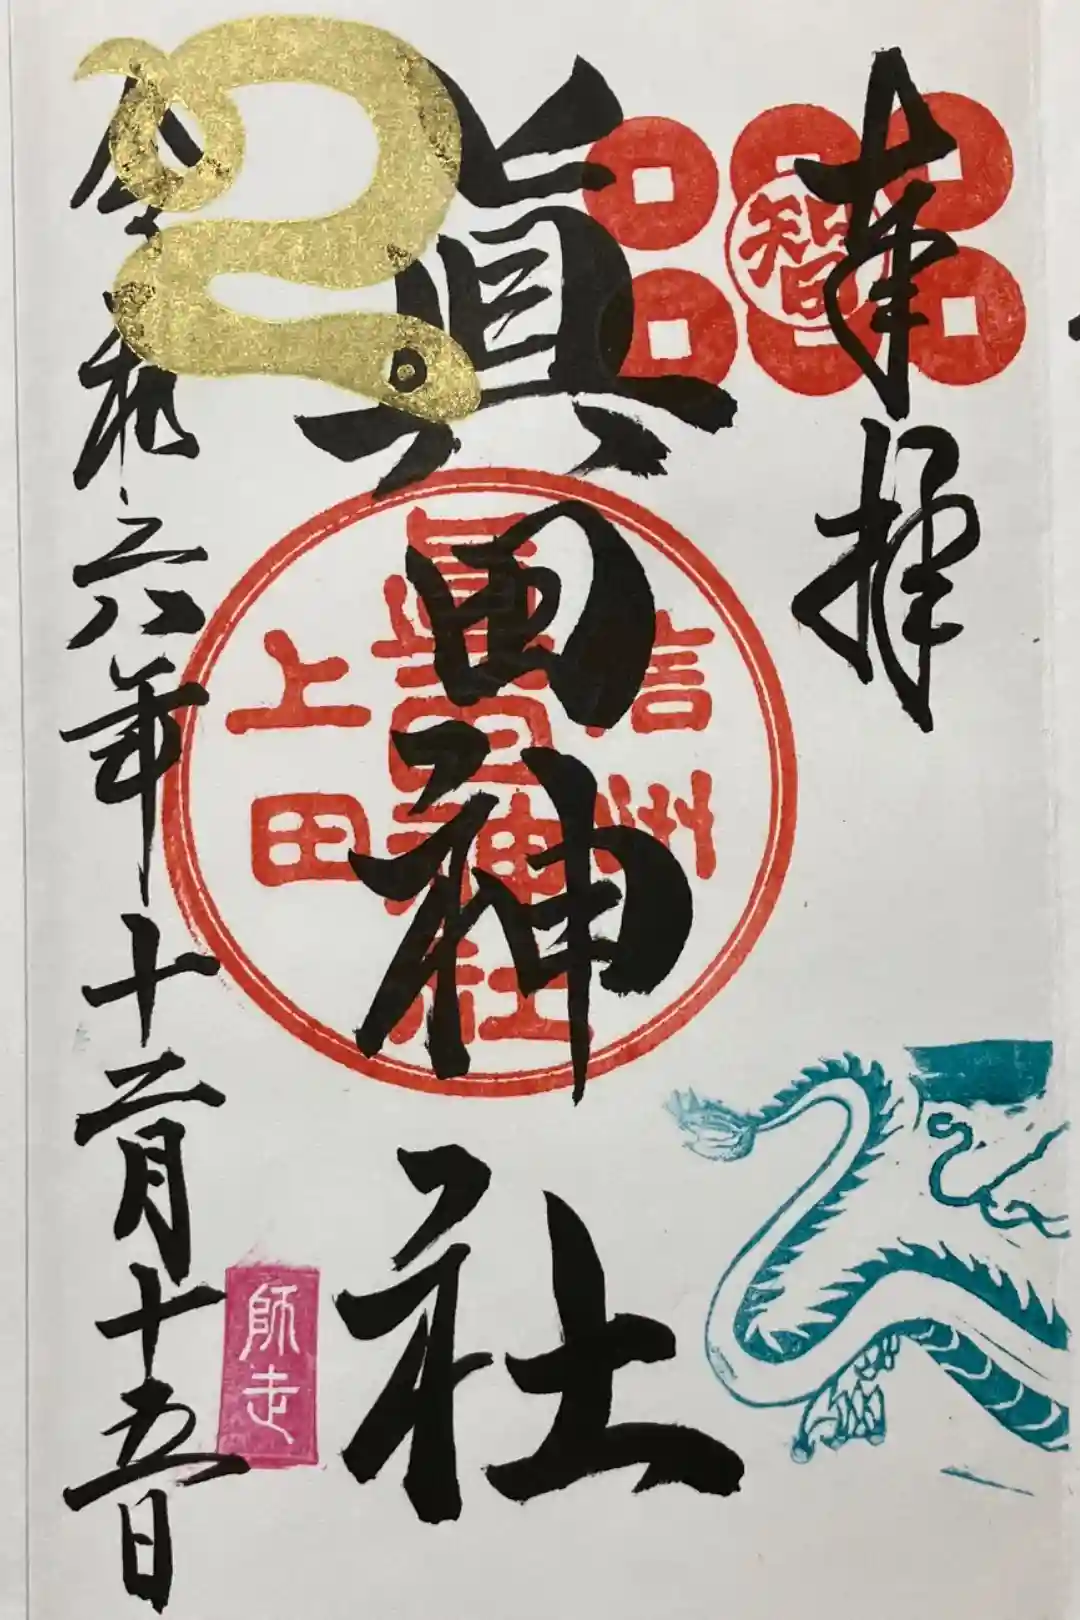 奉拝
智
眞田神社
信州
眞田神社
上田
令和六年十二月十五日
師走